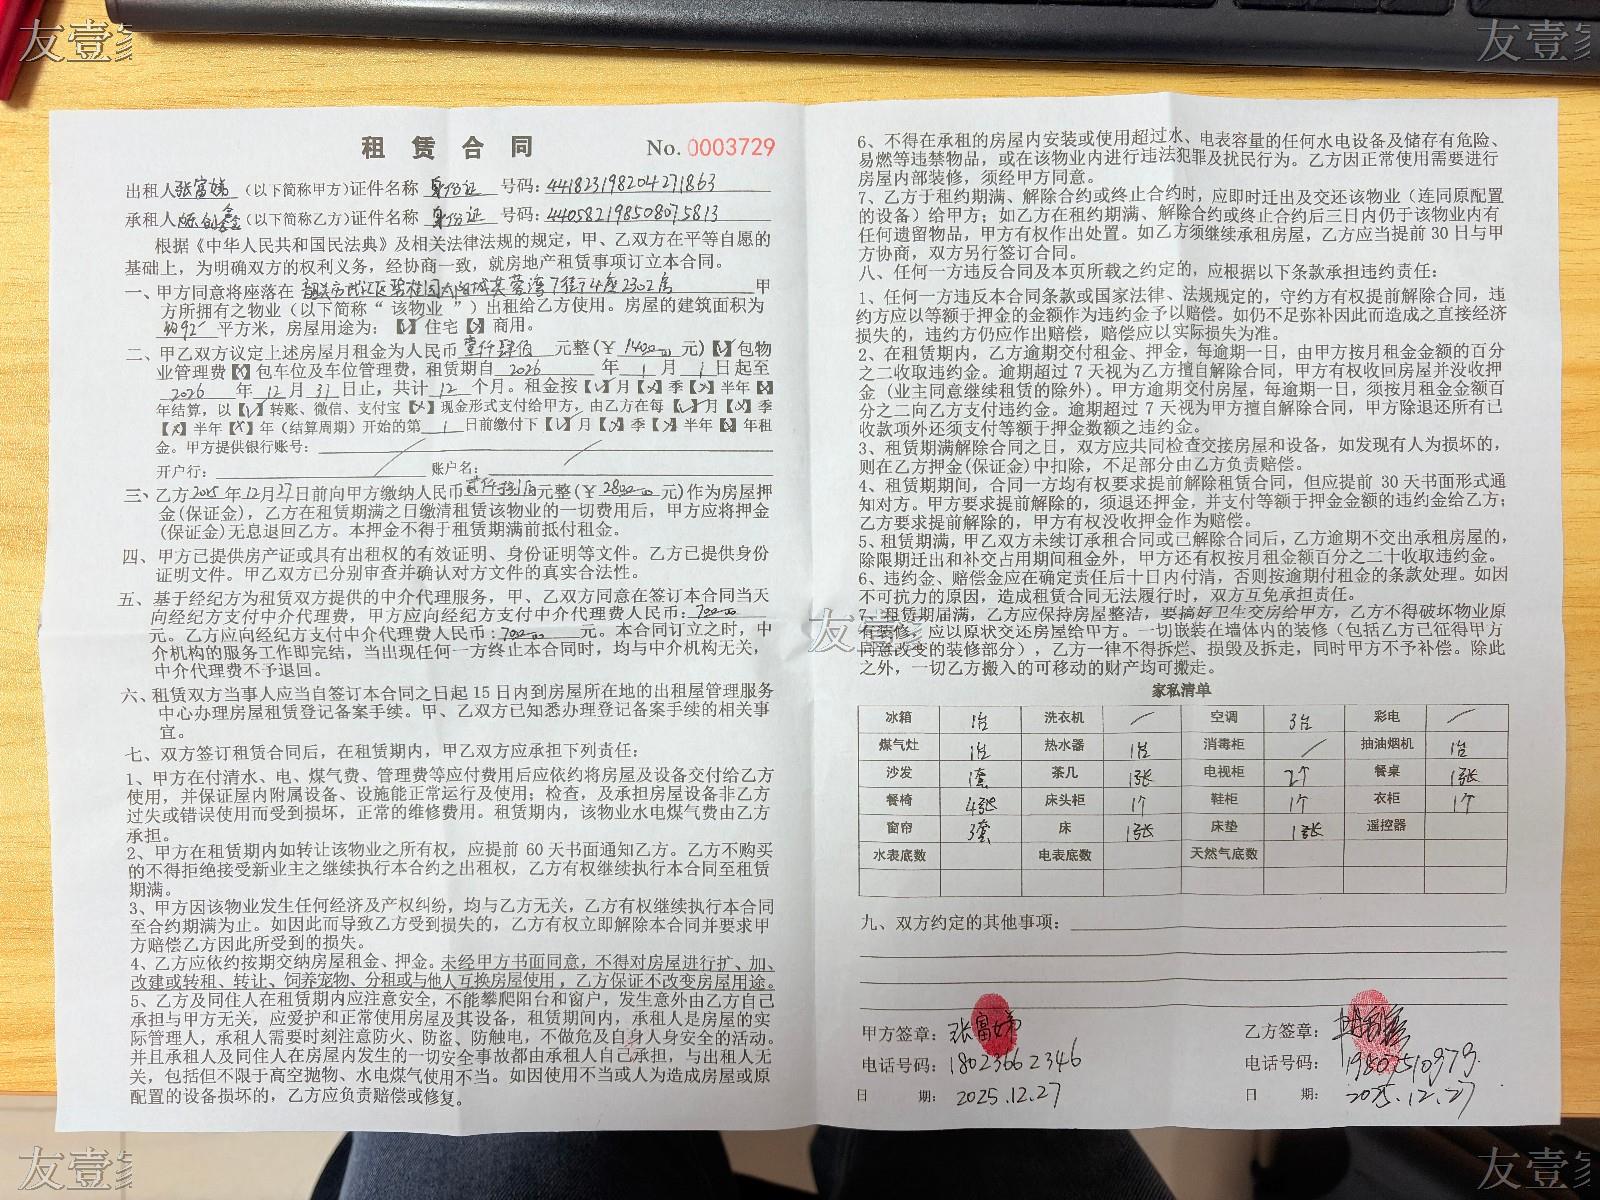 友壹家
友壹家
租 赁 合 同 No. 0003729
出租人张富娣（以下简称甲方）证件名称 身份证 号码：441823198204271863
承租人（以下简称乙方）证件名称 身份证 号码：440582198508075813
根据《中华人民共和国民法典》及相关法律法规的规定，甲、乙双方在平等自愿的
基础上，为明确双方的权利义务，经协商一致，就房地产租赁事项订立本合同。
一、甲方同意将座落在 韶关市武江区碧桂园太阳城芙蓉湾7街4座2302房 甲
方所拥有之物业（以下简称“该物业”）出租给乙方使用。房屋的建筑面积为
约92 平方米，房屋用途为：【√】住宅【×】商用。
二、甲乙双方议定上述房屋月租金为人民币 壹仟肆佰 元整(￥ 1400.00 元)【√】包物
业管理费【×】包车位及车位管理费，租赁期自 2026 年 1 月 1 日起至
2026 年 12 月 31 日止，共计 12 个月。租金按【√】月【×】季【×】半年【×】
年结算，以【√】转账、微信、支付宝【×】现金形式支付给甲方，由乙方在每【√】月【×】季
【×】半年【×】年（结算周期）开始的第 1 日前缴付下【√】月【×】季【×】半年【×】年租
金。甲方提供银行账号：
开户行： 账户名：
三、乙方 2025 年 12 月 27 日前向甲方缴纳人民币 贰仟捌佰 元整(￥ 2800.00 元)作为房屋押
金(保证金)，乙方在租赁期满之日缴清租赁该物业的一切费用后，甲方应将押金
(保证金)无息退回乙方。本押金不得于租赁期满前抵付租金。
四、甲方已提供房产证或具有出租权的有效证明、身份证明等文件。乙方已提供身份
证明文件。甲乙双方已分别审查并确认对方文件的真实合法性。
五、基于经纪方为租赁双方提供的中介代理服务，甲、乙双方同意在签订本合同当天
向经纪方支付中介代理费，甲方应向经纪方支付中介代理费人民币：700.00
元。乙方应向经纪方支付中介代理费人民币：700.00 元。本合同订立之时，中
介机构的服务工作即完结，当出现任何一方终止本合同时，均与中介机构无关，
中介代理费不予退回。
六、租赁双方当事人应当自签订本合同之日起 15 日内到房屋所在地的出租屋管理服务
中心办理房屋租赁登记备案手续。甲、乙双方已知悉办理登记备案手续的相关事
宜。
七、双方签订租赁合同后，在租赁期内，甲乙双方应承担下列责任：
1、甲方在付清水、电、煤气费、管理费等应付费用后应依约将房屋及设备交付给乙方
使用，并保证屋内附属设备、设施能正常运行及使用；检查，及承担房屋设备非乙方
过失或错误使用而受到损坏，正常的维修费用。租赁期内，该物业水电煤气费由乙方
承担。
2、甲方在租赁期内如转让该物业之所有权，应提前 60 天书面通知乙方。乙方不购买
的不得拒绝接受新业主之继续执行本合约之出租权，乙方有权继续执行本合同至租赁
期满。
3、甲方因该物业发生任何经济及产权纠纷，均与乙方无关，乙方有权继续执行本合同
至合约期满为止。如因此而导致乙方受到损失的，乙方有权立即解除本合同并要求甲
方赔偿乙方因此所受到的损失。
4、乙方应依约按期交纳房屋租金、押金。未经甲方书面同意，不得对房屋进行扩、加、
改建或转租、转让、饲养宠物、分租或与他人互换房屋使用，乙方保证不改变房屋用途。
5、乙方及同住人在租赁期内应注意安全，不能攀爬阳台和窗户，发生意外由乙方自己
承担与甲方无关，应爱护和正常使用房屋及其设备，租赁期间内，承租人是房屋的实
际管理人，承租人需要时刻注意防火、防盗、防触电，不做危及自身人身安全的活动。
并且承租人及同住人在房屋内发生的一切安全事故都由承租人自己承担，与出租人无
关，包括但不限于高空抛物、水电煤气使用不当。如因使用不当或人为造成房屋或原
配置的设备损坏的，乙方应负责赔偿或修复。
6、不得在承租的房屋内安装或使用超过水、电表容量的任何水电设备及储存有危险、
易燃等违禁物品，或在该物业内进行违法犯罪及扰民行为。乙方因正常使用需要进行
房屋内部装修，须经甲方同意。
7、乙方于租约期满、解除合约或终止合约时，应即时迁出及交还该物业（连同原配置
的设备）给甲方；如乙方在租约期满、解除合约或终止合约后三日内仍于该物业内有
任何遗留物品，甲方有权作出处置。如乙方须继续承租房屋，乙方应当提前 30 日与甲
方协商，双方另行签订合同。
八、任何一方违反合同及本页所载之约定的，应根据以下条款承担违约责任：
1、任何一方违反本合同条款或国家法律、法规规定的，守约方有权提前解除合同，违
约方应以等额于押金的金额作为违约金予以赔偿。如仍不足弥补因此而造成之直接经济
损失的，违约方仍应作出赔偿，赔偿应以实际损失为准。
2、在租赁期内，乙方逾期交付租金、押金，每逾期一日，由甲方按月租金金额的百分
之二收取违约金。逾期超过 7 天视为乙方擅自解除合同，甲方有权收回房屋并没收押
金（业主同意继续租赁的除外）。甲方逾期交付房屋，每逾期一日，须按月租金金额百
分之二向乙方支付违约金。逾期超过 7 天视为甲方擅自解除合同，甲方除退还所有已
收款项外还须支付等额于押金数额之违约金。
3、租赁期满解除合同之日，双方应共同检查交接房屋和设备，如发现有人为损坏的，
则在乙方押金(保证金)中扣除，不足部分由乙方负责赔偿。
4、租赁期期间，合同一方均有权要求提前解除租赁合同，但应提前 30 天书面形式通
知对方。甲方要求提前解除的，须退还押金，并支付等额于押金金额的违约金给乙方；
乙方要求提前解除的，甲方有权没收押金作为赔偿。
5、租赁期满，甲乙双方未续订承租合同或已解除合同后，乙方逾期不交出承租房屋的，
除限期迁出和补交占用期间租金外，甲方还有权按月租金额百分之二十收取违约金。
6、违约金、赔偿金应在确定责任后十日内付清，否则按逾期付租金的条款处理。如因
不可抗力的原因，造成租赁合同无法履行时，双方互免承担责任。
7、租赁期届满，乙方应保持房屋整洁，要搞好卫生交房给甲方，乙方不得破坏物业原
有装修，应以原状交还房屋给甲方。一切嵌装在墙体内的装修（包括乙方已征得甲方
同意改变的装修部分），乙方一律不得拆烂、损毁及拆走，同时甲方不予补偿。除此
之外，一切乙方搬入的可移动的财产均可搬走。
友壹家
家私清单
冰箱 1台 洗衣机 ／ 空调 3台 彩电 ／
煤气灶 1台 热水器 1台 消毒柜 ／ 抽油烟机 1台
沙发 1套 茶几 1张 电视柜 2个 餐桌 1张
餐椅 4张 床头柜 1个 鞋柜 1个 衣柜 1个
窗帘 3套 床 1张 床垫 1张 遥控器
水表底数 电表底数 天然气底数
九、双方约定的其他事项：
甲方签章：张富娣 乙方签章：
电话号码：18023662346 电话号码：
日 期：2025.12.27 日 期：2025.12.27
友壹家
友壹家